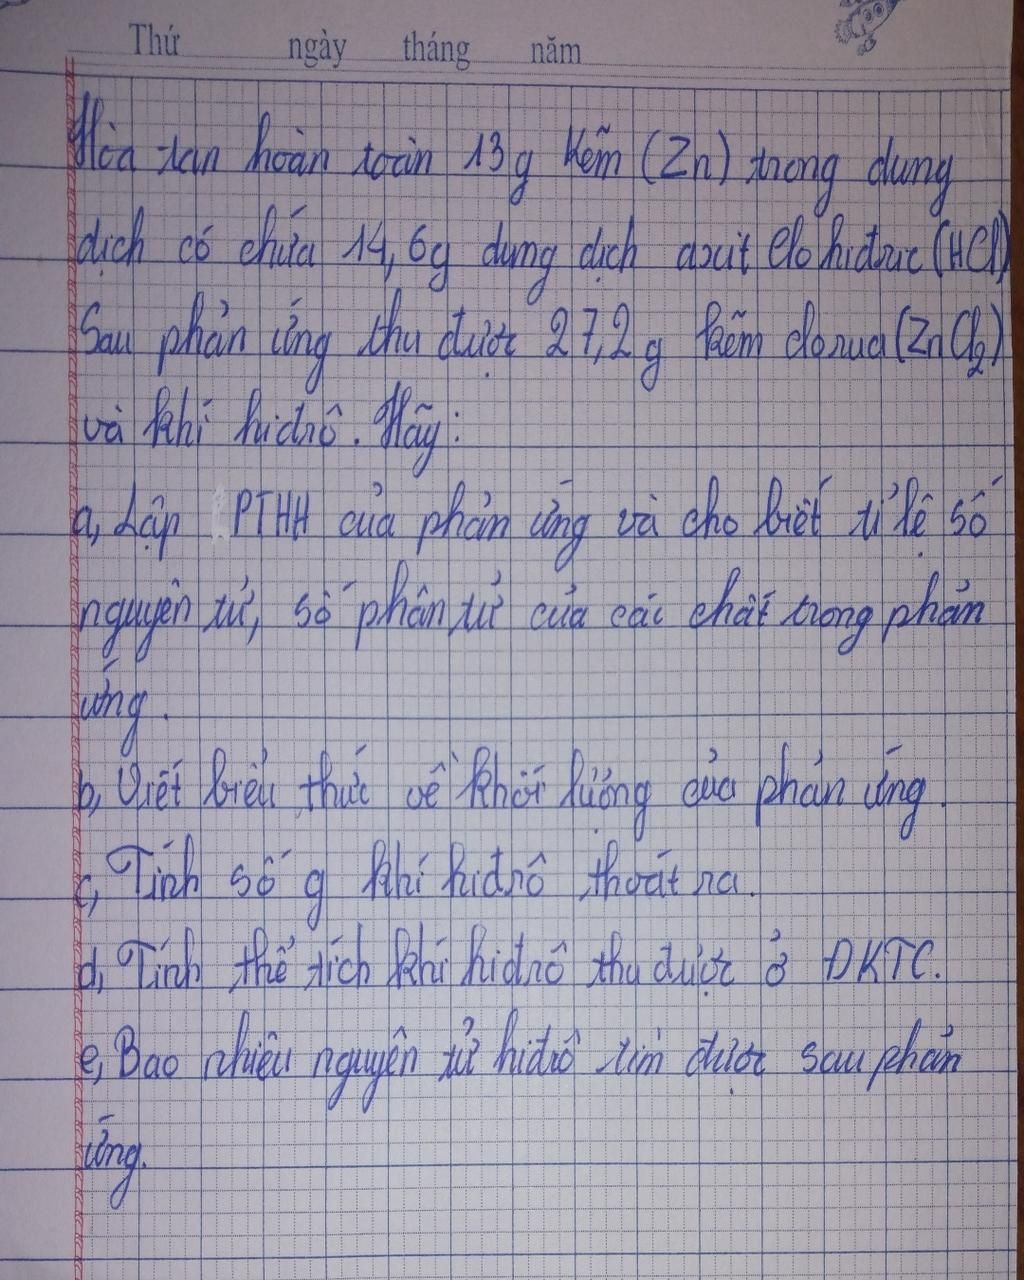 Thứ ngày tháng năm
Hòa tan hoàn toàn 13g kẽm (Zn) trong dung
dịch có chứa 14,6g dung dịch axit clohiđric (HCl)
Sau phản ứng thu được 27,2g kẽm clorua (ZnCl₂)
và khí hiđrô. Hãy:
a, Lập PTHH của phản ứng và cho biết tỉ lệ số
nguyên tử, số phân tử của các chất trong phản
ứng.
b, Viết biểu thức về khối lượng của phản ứng.
c, Tính số g khí hiđrô thoát ra.
d, Tính thể tích khí hiđrô thu được ở ĐKTC.
e, Bao nhiêu nguyên tử hiđrô tìm được sau phản
ứng.